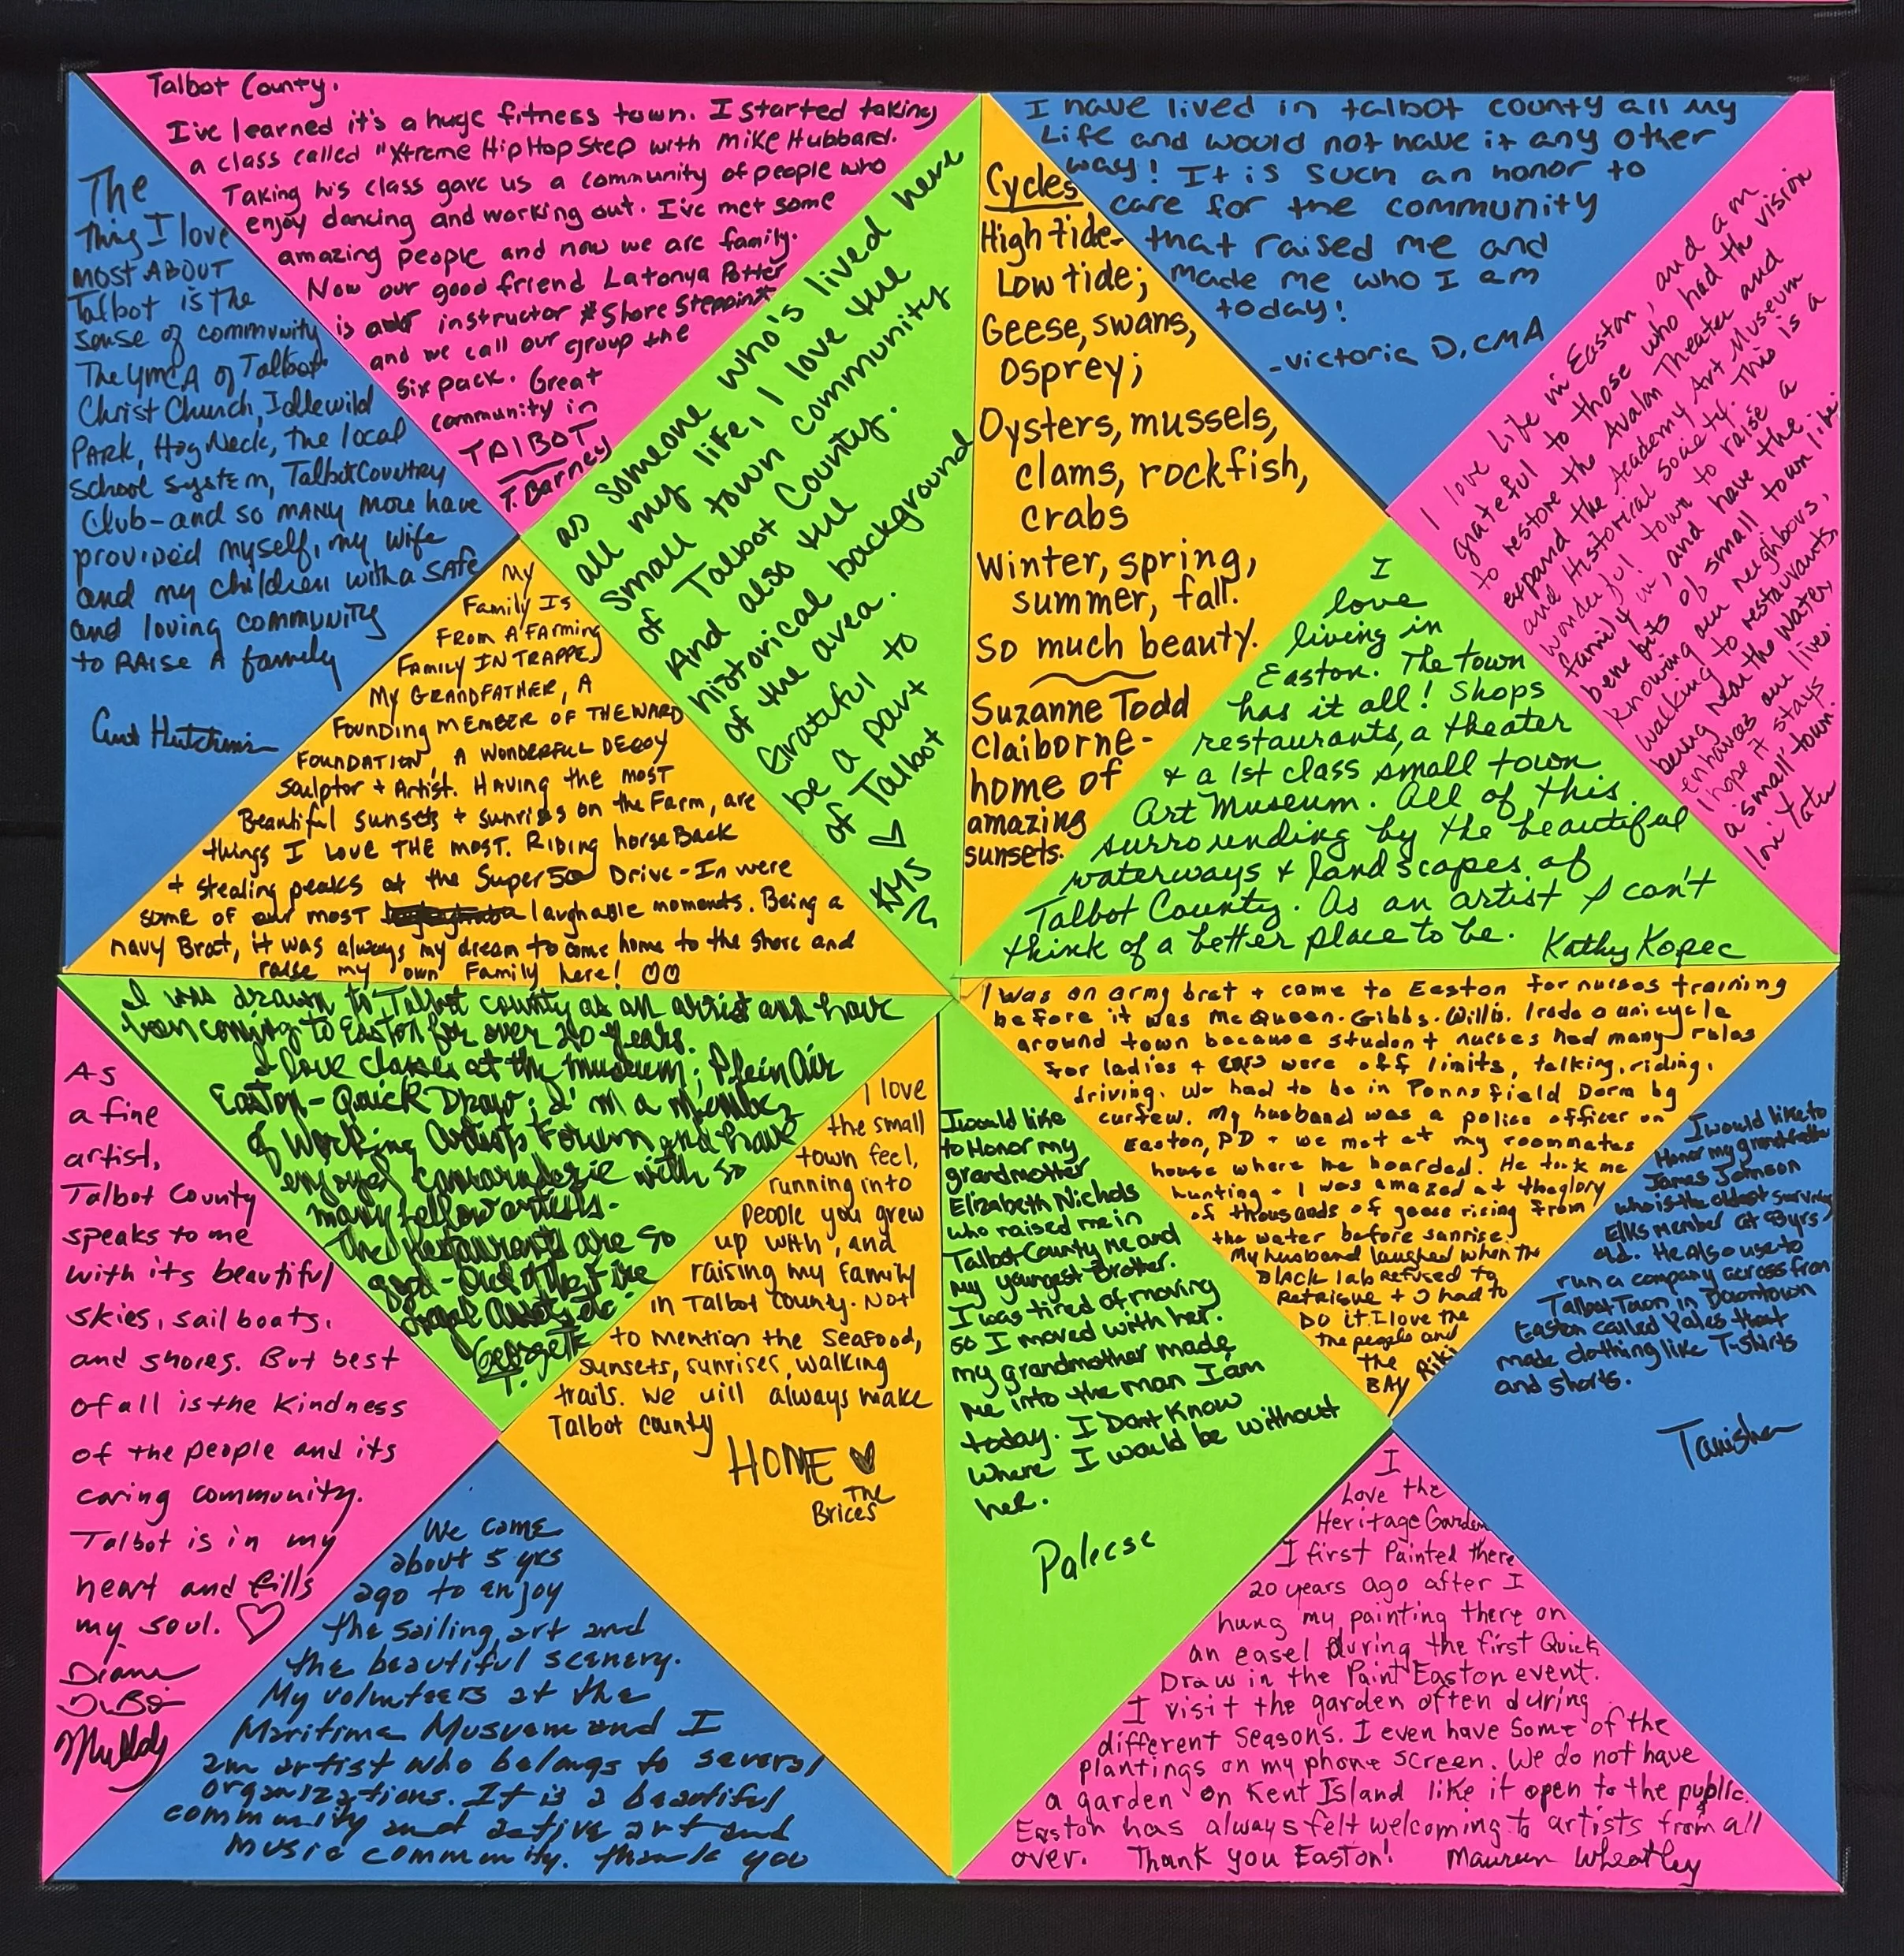 Talbot County.
I've learned it's a huge fitness town. I started taking
a class called "Xtreme HipHop Step with Mike Hubbard.
Taking his class gave us a community of people who
enjoy dancing and working out. I've met some
amazing people and now we are family.
Now our good friend Latonya Potter
is our instructor #Shore Steppin*
and we call our group the
six pack. Great
community in
TALBOT
T. Barney
The
thing I love
most ABOUT
Talbot is the
sense of community
The YMCA of Talbot
Christ Church, Idlewild
Park, Hog Neck, the local
school system, Talbot Country
Club-and so MANY more have
provided myself, my wife
and my children with a safe
and loving community
to RAise A family
Curt Hutchins
as someone who's lived here
all my life, I love the
small town community
of Talbot County.
And also the
historical background
of the area.
Grateful to
be a part
of Talbot
♡
KMS
My
Family Is
From A Farming
Family IN TRAPPE,
My GRANDFATHER, A
Founding MEMBER OF THE WARD
FOUNDATION, A WONDERFUL DECOY
Sculptor + Artist. Having the most
Beautiful sunsets + sunrises on the Farm, are
things I LOVE THE MOST. Riding horseBack
+ stealing peaks at the Super50 Drive-In were
some of our most laughable moments. Being a
navy Brat, it was always my dream to come home to the shore and
raise my own Family here! ♡♡
Cycles
High tide-
Low tide;
Geese, swans,
Osprey;
Oysters, mussels,
clams, rockfish,
crabs
Winter, spring,
summer, fall.
So much beauty.
Suzanne Todd
Claiborne-
home of
amazing
sunsets.
I have lived in talbot county all my
Life and would not have it any other
way! It is such an honor to
care for the community
that raised me and
made me who I am
today!
-victoria D, CMA
I love life in Easton, and am
grateful to those who had the vision
to restore the Avalon Theater and
expand the Academy Art Museum
and Historical Society. This is a
wonderful town to raise a
family in, and have the
benefits of small town life.
Knowing our neighbors,
walking to restaurants,
being near the water,
enhances our lives.
I hope it stays
a "small" town.
Lori Yates
I
love
living in
Easton. The town
has it all! Shops
restaurants, a theater
+ a 1st class small town
Art Museum. All of this
surrounding by the beautiful
waterways + landscapes of
Talbot County. As an artist I can't
think of a better place to be. Kathy Kopec
I was drawn to Talbot county as an artist and have
been coming to Easton for over 20 years.
I love classes at the museum; Plein Air
Easton-Quick Draw; I'm a member
of Working Artists Forum and have
enjoyed camaraderie with so
many fellow artists.
The Restaurants are so
good - Out of the Fire
etc.
Georgette
T.
As
a fine
artist,
Talbot County
speaks to me
with its beautiful
skies, sailboats,
and shores. But best
of all is the kindness
of the people and its
caring community.
Talbot is in my
heart and fills
my soul. ♡
Diane
DuBois
Mullaly
I love
the small
town feel,
running into
people you grew
up with, and
raising my family
in Talbot County. Not
to mention the seafood,
sunsets, sunrises, walking
trails. We will always make
Talbot County
HOME ♥
The
Brices
We came
about 5 yrs
ago to enjoy
the sailing, art and
the beautiful scenery.
My volunteers at the
Maritime Museum and I
am artist who belongs to several
organizations. It is a beautiful
community and active art and
music community. Thank you
I was an army brat + came to Easton for nurses training
before it was McQueen-Gibbs-Willis. I rode a unicycle
around town because student nurses had many rules
for ladies + cars were off limits, talking, riding,
driving. We had to be in Pennsfield Dorm by
curfew. My husband was a police officer on
Easton, PD + we met at my roommates
house where he boarded. He took me
hunting + I was amazed at the glory
of thousands of geese rising from
the water before sunrise.
My husband laughed when the
BLACK lab refused to
Retrieve + I had to
DO it. I love the
the people and
the
BAY Riki
I would like
to Honor my
grandmother
Elizabeth Nichols
who raised me in
Talbot County me and
my youngest Brother.
I was tired of moving
so I moved with her.
my grandmother made
me into the man I am
today. I Dont Know
where I would be without
her.
Paleese
I would like to
Honor my grandfather
James Johnson
who is the oldest surviving
Elks member at 93yrs
old. He also use to
run a company across from
Talbot Town in Downtown
Easton called Yales that
made clothing like T-shirts
and shorts.
Tanisha
I
Love the
Heritage Garden
I first Painted there
20 years ago after I
hung my painting there on
an easel during the first Quick
Draw in the Paint Easton event.
I visit the garden often during
different seasons. I even have some of the
plantings on my phone screen. We do not have
a garden on Kent Island like it open to the public.
Easton has always felt welcoming to artists from all
over. Thank you Easton! Maureen Wheatley